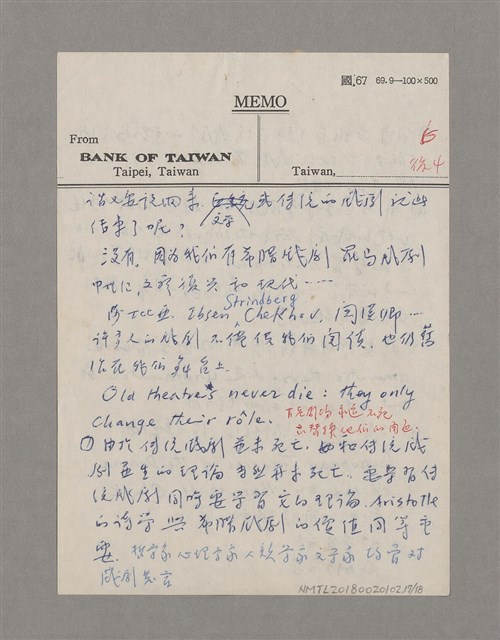 國.67 69.9—100×500
MEMO
From
BANK OF TAIWAN
Taipei, Taiwan
Taiwan,
後4
話又要說回來. 文學 或傳統的戲劇 從此
結束了呢?
沒有, 因為我們有希臘戲劇 羅馬戲劇
中世紀, 文藝復興 和現代……
Strindberg
莎士比亞. Ibsen Chekhov, 關漢卿…
許多人的戲劇 不僅供我們閱讀, 也仍舊
活在我們舞台上.
Old theatres never die: they only
change their rôle.
古老劇場永遠不死
只替換他們的角色.
① 由於傳統戲劇並未死亡. 如和傳統戲
劇並生的理論 當然並未死亡. 要學習傳
統戲劇同時要學習它的理論. Aristotle
的詩學與希臘戲劇的價值同等重
要. 哲學家心理學家人類學家文學家均曾對
戲劇發言
NMTL20180020102.17/18